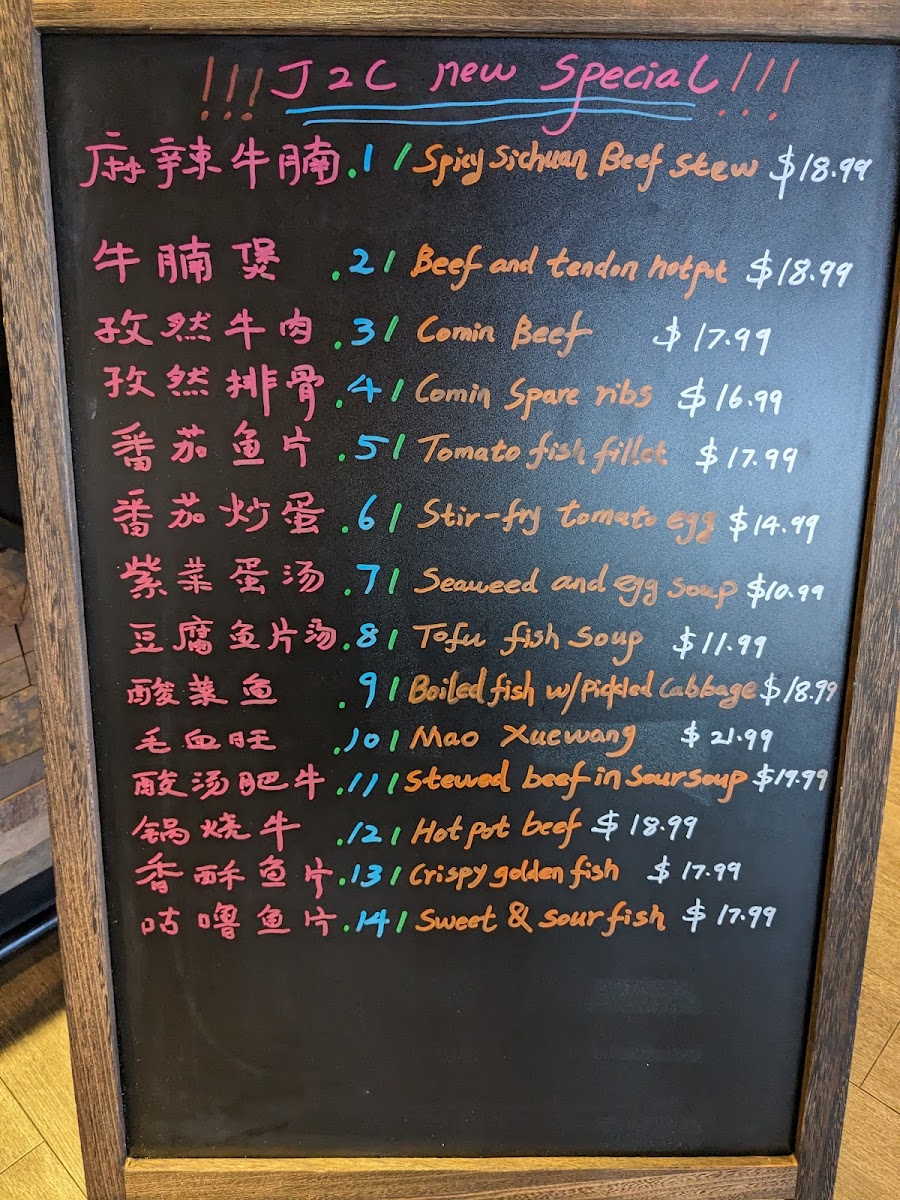 !!! J2C new Special !!!
麻辣牛腩 .1 / Spicy Sichuan Beef stew $18.99
牛腩煲 .2 / Beef and tendon hotpot $18.99
孜然牛肉 .3 / Comin Beef $17.99
孜然排骨 .4 / Comin Spare ribs $16.99
番茄鱼片 .5 / Tomato fish fillet $17.99
番茄炒蛋 .6 / Stir-fry tomato egg $14.99
紫菜蛋汤 .7 / Seaweed and egg soup $10.99
豆腐鱼片汤 .8 / Tofu fish soup $11.99
酸菜鱼 .9 / Boiled fish w/pickled cabbage $18.99
毛血旺 .10 / Mao Xuewang $21.99
酸汤肥牛 .11 / Stewed beef in sour soup $19.99
锅烧牛 .12 / Hot pot beef $18.99
香酥鱼片 .13 / Crispy golden fish $17.99
咕噜鱼片 .14 / Sweet & sour fish $17.99